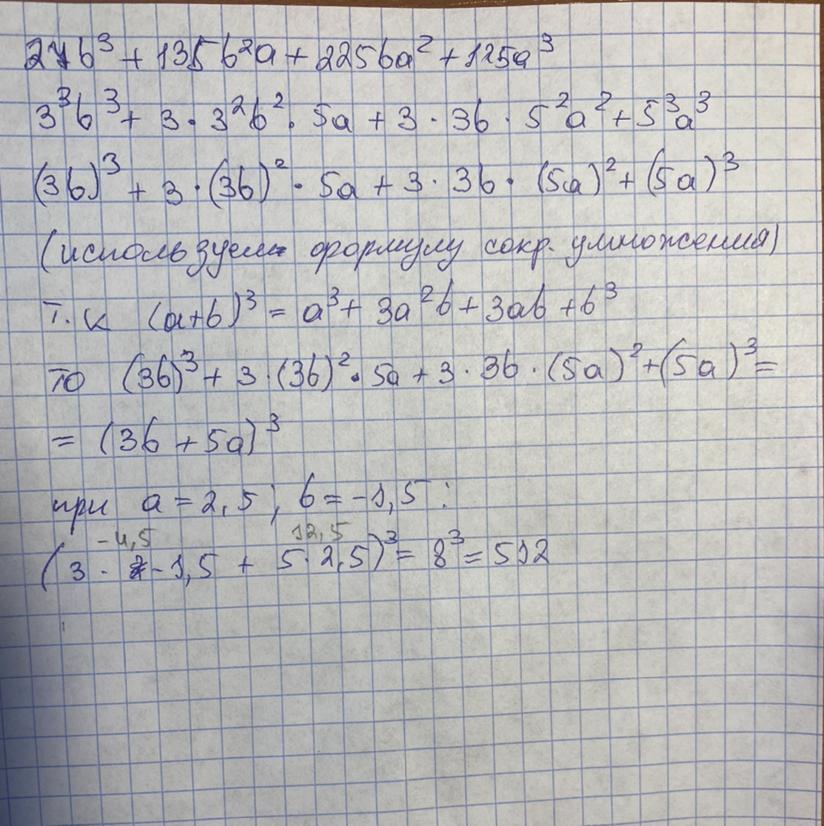 27b³ + 135b²a + 225ba² + 125a³
3³b³ + 3 · 3²b² · 5a + 3 · 3b · 5²a² + 5³a³
(3b)³ + 3 · (3b)² · 5a + 3 · 3b · (5a)² + (5a)³
(используем формулу сокр. умножения)
Т.к (a+b)³ = a³ + 3a²b + 3ab + b³
то (3b)³ + 3 · (3b)² · 5a + 3 · 3b · (5a)² + (5a)³ =
= (3b + 5a)³
при a = 2,5 ; b = -1,5 :
-4,5 12,5
(3 · -1,5 + 5 · 2,5)³ = 8³ = 512